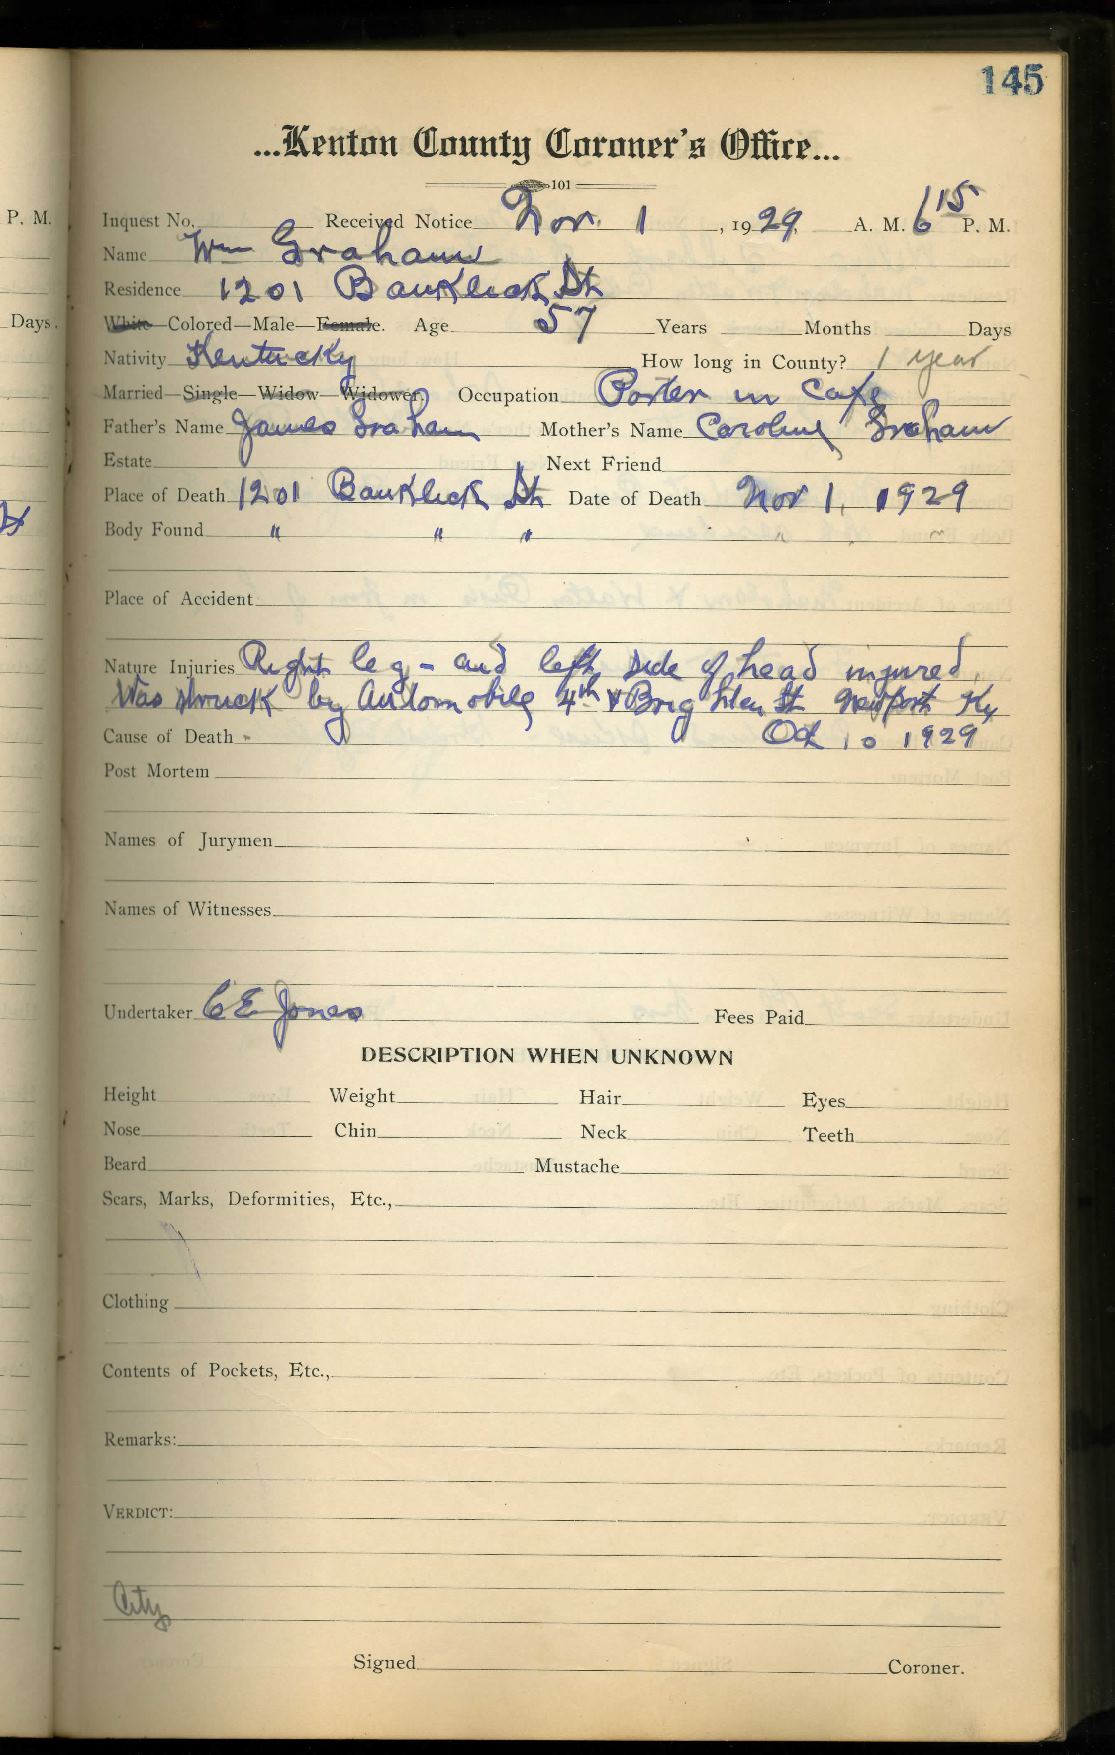 145
...Kenton County Coroner's Office...
101
P. M.
Inquest No. Received Notice Nov. 1, 1929. A. M. 6 15 P. M.
Name Wm Graham
Residence 1201 Banklick St
Days.
White—Colored—Male—Female. Age 57 Years Months Days
Nativity Kentucky How long in County? 1 year
Married—Single—Widow—Widower, Occupation Porter in Cafe
Father's Name James Graham Mother's Name Caroline Graham
Estate Next Friend
Place of Death 1201 Banklick St Date of Death Nov 1, 1929
Body Found " " " " "
Place of Accident
Nature Injuries Right leg - and left side of head injured.
Was struck by Automobile 4th & Brighten St Newport Ky
Cause of Death - Oct 10 1929
Post Mortem
Names of Jurymen
Names of Witnesses
Undertaker C E Jones Fees Paid
DESCRIPTION WHEN UNKNOWN
Height Weight Hair Eyes
Nose Chin Neck Teeth
Beard Mustache
Scars, Marks, Deformities, Etc.,
Clothing
Contents of Pockets, Etc.,
Remarks:
VERDICT:
City
Signed Coroner.